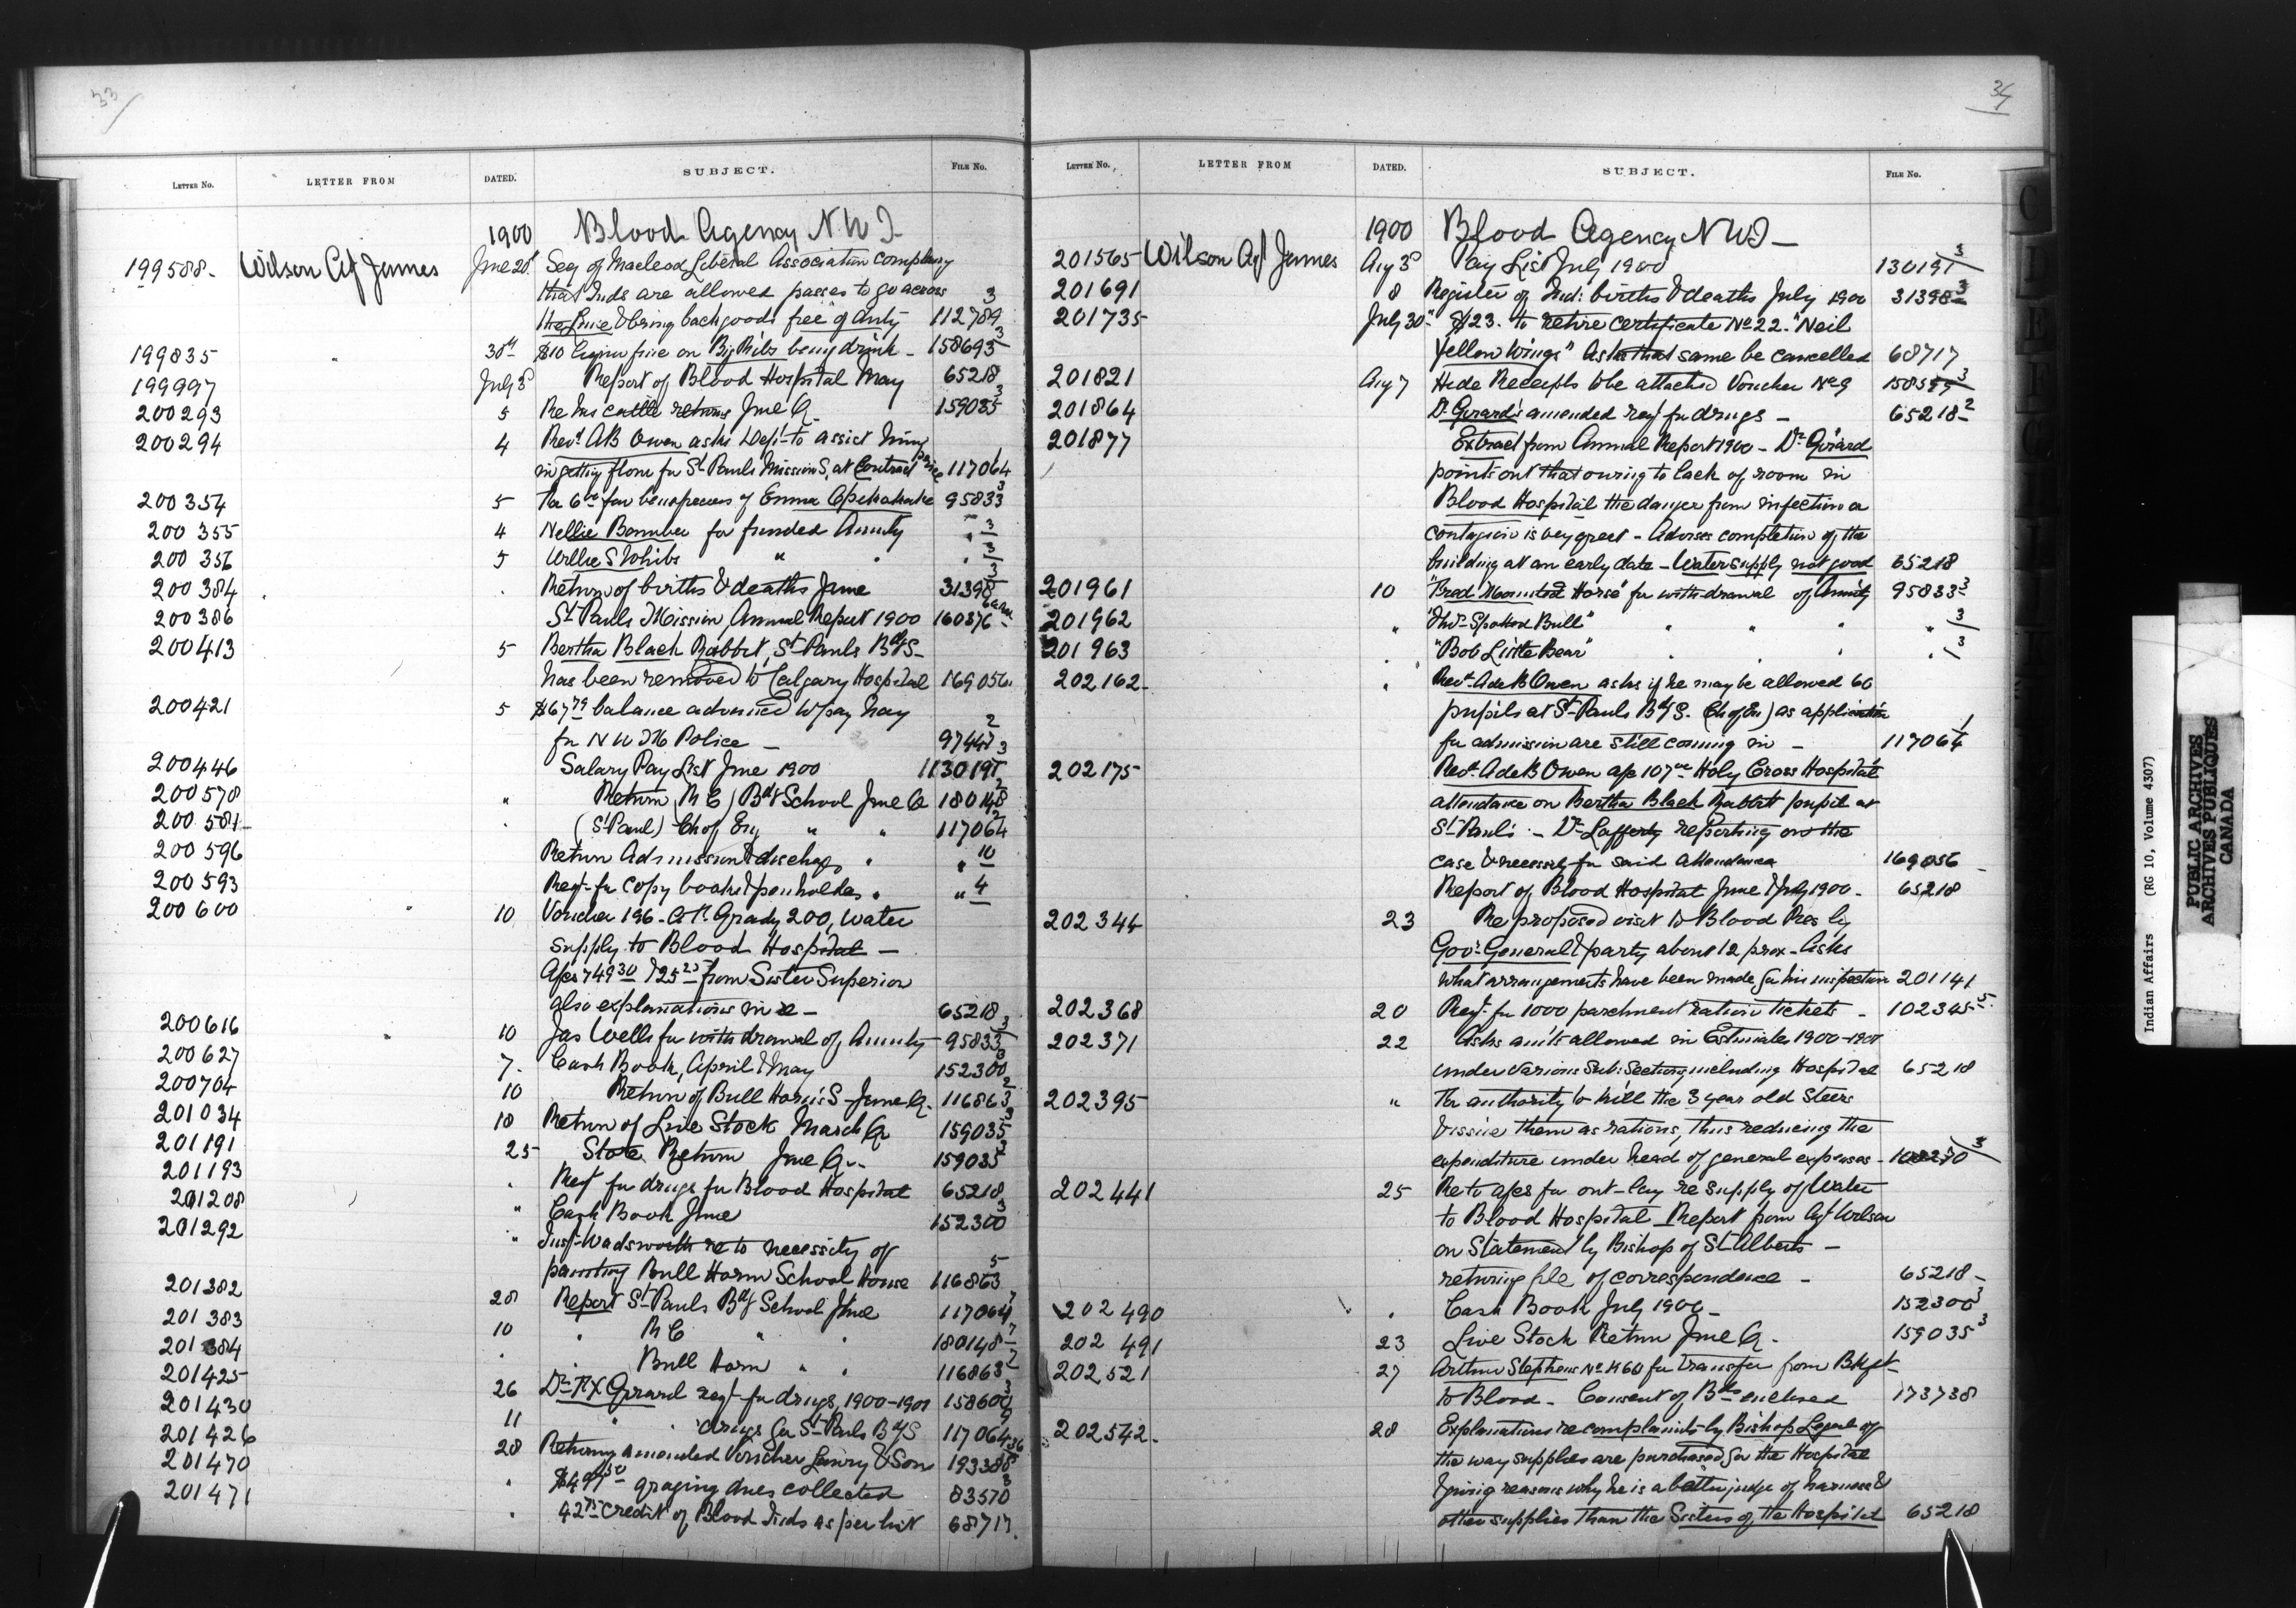 33
LETTER No. LETTER FROM DATED. SUBJECT. FILE No.
1900 Blood Agency N.W.T.
199588 - Wilson Agt James June 28 Secy of Macleod Liberal Association complains
that Inds are allowed passes to go across
the Line & bring back goods free of duty 112789 3
199835 " 30th $10 liquor fine on Big Ribs being drunk - 158693 3
199997 July 3 Report of Blood Hospital May 65218
200293 5 Re Ins cattle returns June Q. 159035 3
200294 4 Revd AB Owen asks Dept to assist him
in getting flour for St Pauls Mission S. at Contract price 117064 1
200354 5 6 for Emma 95833 3
200355 4 Nellie for funded Annuity " 3
200356 5 Willie S Whibs " " " 3
200384 . Return of births & deaths June 31398 3
200386 St Pauls Mission, Annual Report 1900 160376
200413 5 Bertha Black Rabbit, St Pauls BdgS-
has been removed to Calgary Hospital 169056
200421 5 $67 79 balance advanced to pay hay
for N W M Police - 97447 2
200446 Salary Pay List June 1900 130191 3
200578 " Return (R C) Bdg School June Q 180148 2
200581- . (St Paul) Ch of Eng " " 117064 2
200596 Return Admission & discharge " " 10
200593 Reqt for copy books & penholders " " 4
200600 10 Voucher 196 - Grady 200, water
supply to Blood Hospital -
Afcs 749 30 & 25 25 from Sister Superior
also explanations in re - 65218
200616 10 Jas Wells for withdrawal of Annuity 95833 3
200627 7. Cash Book, April & May 152300 3
200704 10 Return of Bull Horn's S - June Q. 116863 2
201034 18 Return of Live Stock March Q 159035 3
201191 25 Store Return June Q.. 159035 3
201193 . Reqt for drugs for Blood Hospital 65218
201208 " Cash Book June 152300 3
201292 " Insp Wadsworth re to necessity of
painting Bull Horn School House 116863 5
201382 28 Report St Pauls Bdg School June 117064 7
201383 10 . R C " . 180148 7
201384 . . Bull Horn " . 116863 2
201425 26 Dr FX Girard reqt for drugs, 1900-1901 158600 3
201430 11 " . drugs for St Pauls BdgS 117064 9
201426 28 Returning amended Voucher & Son 193388
201470 . $497 50 grazing dues collected 83570 3
201471 . 42 75 credit of Blood Inds as per list 68717.
34
LETTER No. LETTER FROM DATED. SUBJECT. FILE No.
1900 Blood Agency N W T -
201565 Wilson Agt James Aug 3 Pay List July 1900 130191 3
201691 8 Register of Ind: births & deaths July 1900 31398 3
201735 July 30 $123. to retire certificate No 22. "Neil
Yellow Wings" Asks that same be cancelled 68717
201821 Aug 7 Hide Receipts to be attached Voucher No 9 158599 3
201864 Dr Girard's amended reqt for drugs - 65218 2
201877 Extract from Annual Report 1900 - Dr Girard
points out that owing to lack of room in
Blood Hospital the danger from infection or
contagion is very great - Advises completion of the
building at an early date - Water supply not good 65218
201961 10 "Fred Mounted Horse" for withdrawal of Annuity 95833 3
201962 " "Spotted Bull" " " " " 3
201963 . "Bob Little Bear" . . . . 3
202162 - " Revd Ade B Owen asks if he may be allowed 60
pupils at St Pauls BdgS. (Ch of En) as application
for admission are still coming in - 117064 1
202175 Revd Ade B Owen afc 107 00 Holy Cross Hospital
attendance on Bertha Black Rabbit pupil at
St Paul's - Dr Lafferty reporting on the
case & necessity for said attendance 169056
Report of Blood Hospital June & July 1900 - 65218
202344 23 Re proposed visit to Blood Res by
Govr General & party about 12 prox - Asks
what arrangements have been made for his inspection 201141
202368 20 Reqt for 1000 parchment ration tickets - 102345 5
202371 22 Asks amts allowed in Estimates 1900-1901
under various Sub: Sections including Hospital 65218
202395 " For authority to kill the 3 year old Steers
& issue them as rations, thus reducing the
expenditure under head of general expenses - 3
202441 25 Re to afcs for out-lay re supply of Water
to Blood Hospital - Report from Agt Wilson
on Statement by Bishop of St Alberts -
returning file of correspondence - 65218 -
202490 . Cash Book July 1900 - 152300 3
202491 23 Live Stock Return June Q. 159035 3
202521 27 Arthur Stephens No. 160 for transfer from Bkft
to Blood - Consent of Bds enclosed 173738
202542 - 28 Explanations re complaints by Bishop Legal of
the way supplies are purchased for the Hospital
& giving reasons why he is a better judge of harness &
other supplies than the Sisters of the Hospital 65218
Indian Affairs (RG 10, Volume 4307)
PUBLIC ARCHIVES
ARCHIVES PUBLIQUES
CANADA